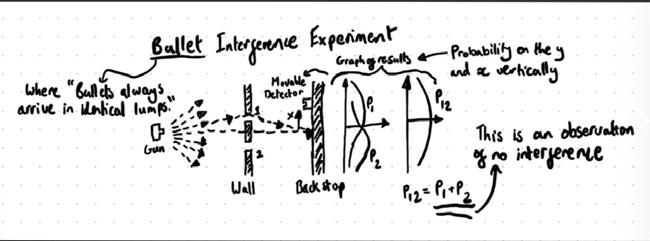 Bullet Interference Experiment
Where "Bullets always
arrive in identical lumps."
Gun
1
2
Wall
Movable
Detector
x
Backstop
Graph of results
P₁
P₂
P₁₂
P₁₂ = P₁ + P₂
Probability on the y
and x vertically
This is an observation
of no interference